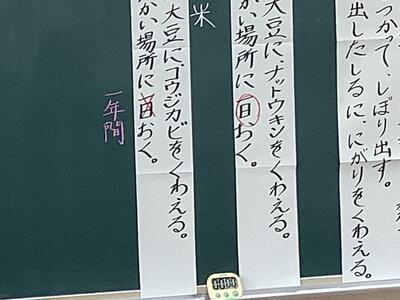 つかって、しぼり出す。
出したしるに、にがりをくわえる。
大豆に、ナットウキンをくわえる。
かい場所に一日おく。
米
大豆に、コウジカビをくわえる。
かい場所に一日おく。
一年間